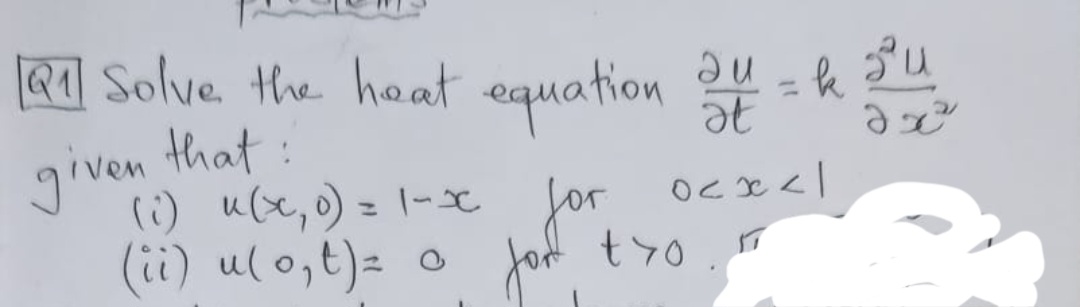 Q1 Solve the heat equation ∂u/∂t = k ∂²u/∂x²
given that :
(i) u(x,0) = 1-x for 0<x<1
(ii) u(0,t) = 0 for t>0.